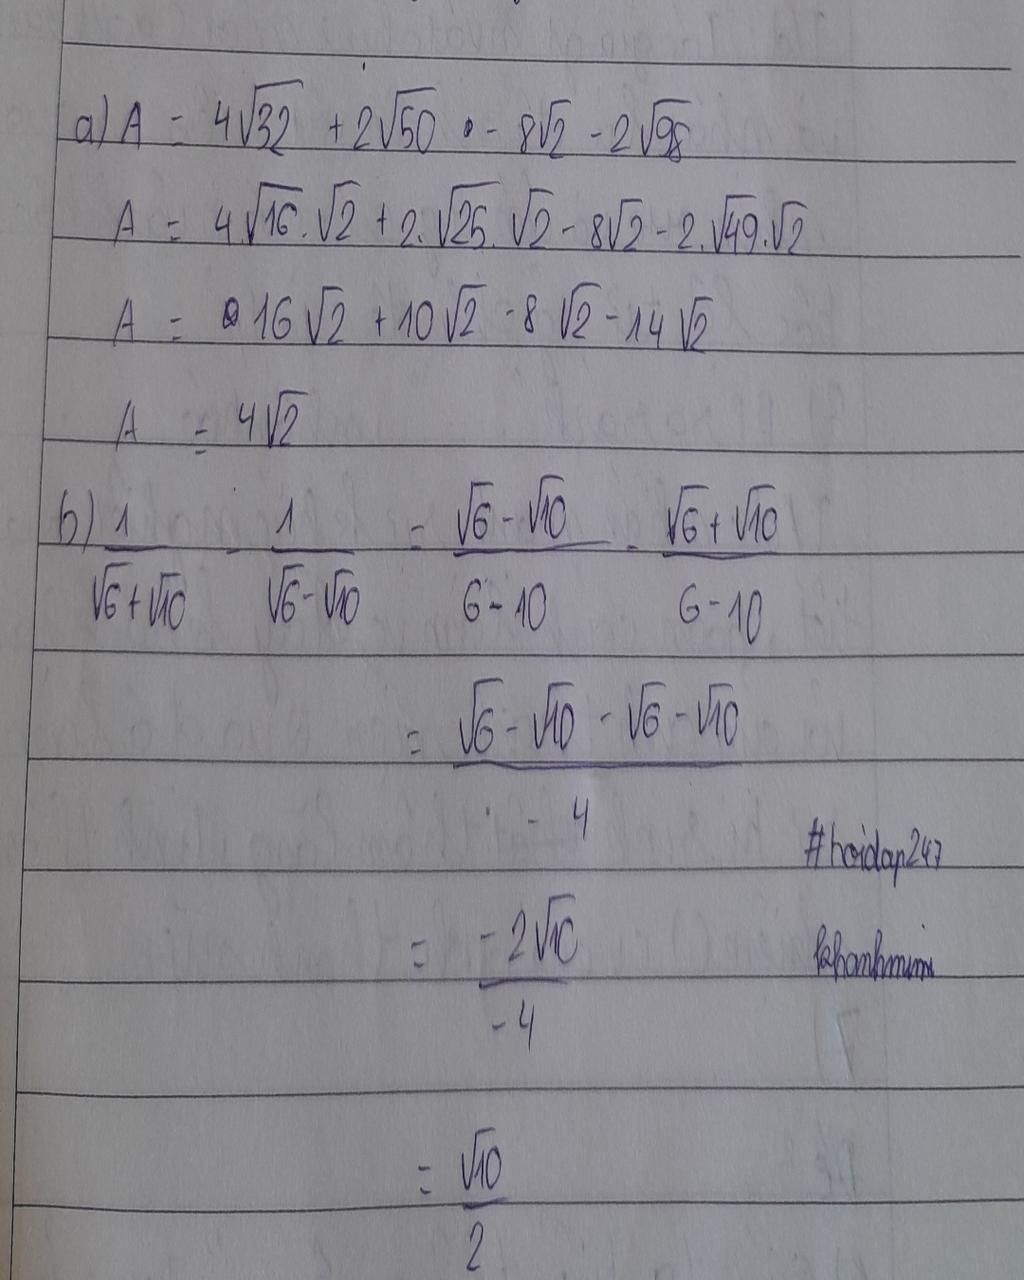 a) A = 4√32 + 2√50 - 8√2 - 2√98
A = 4.√16.√2 + 2.√25.√2 - 8√2 - 2.√49.√2
A = 16√2 + 10√2 - 8√2 - 14√2
A = 4√2
b) 1/(√6+√10) - 1/(√6-√10) = (√6-√10)/(6-10) - (√6+√10)/(6-10)
= (√6-√10-√6-√10)/(-4)
#hoidap247
= (-2√10)/(-4)
khanhmimi
= √10/2